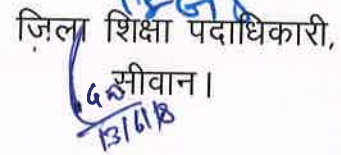 ज़िला शिक्षा पदाधिकारी,
सीवान।
13/6/18